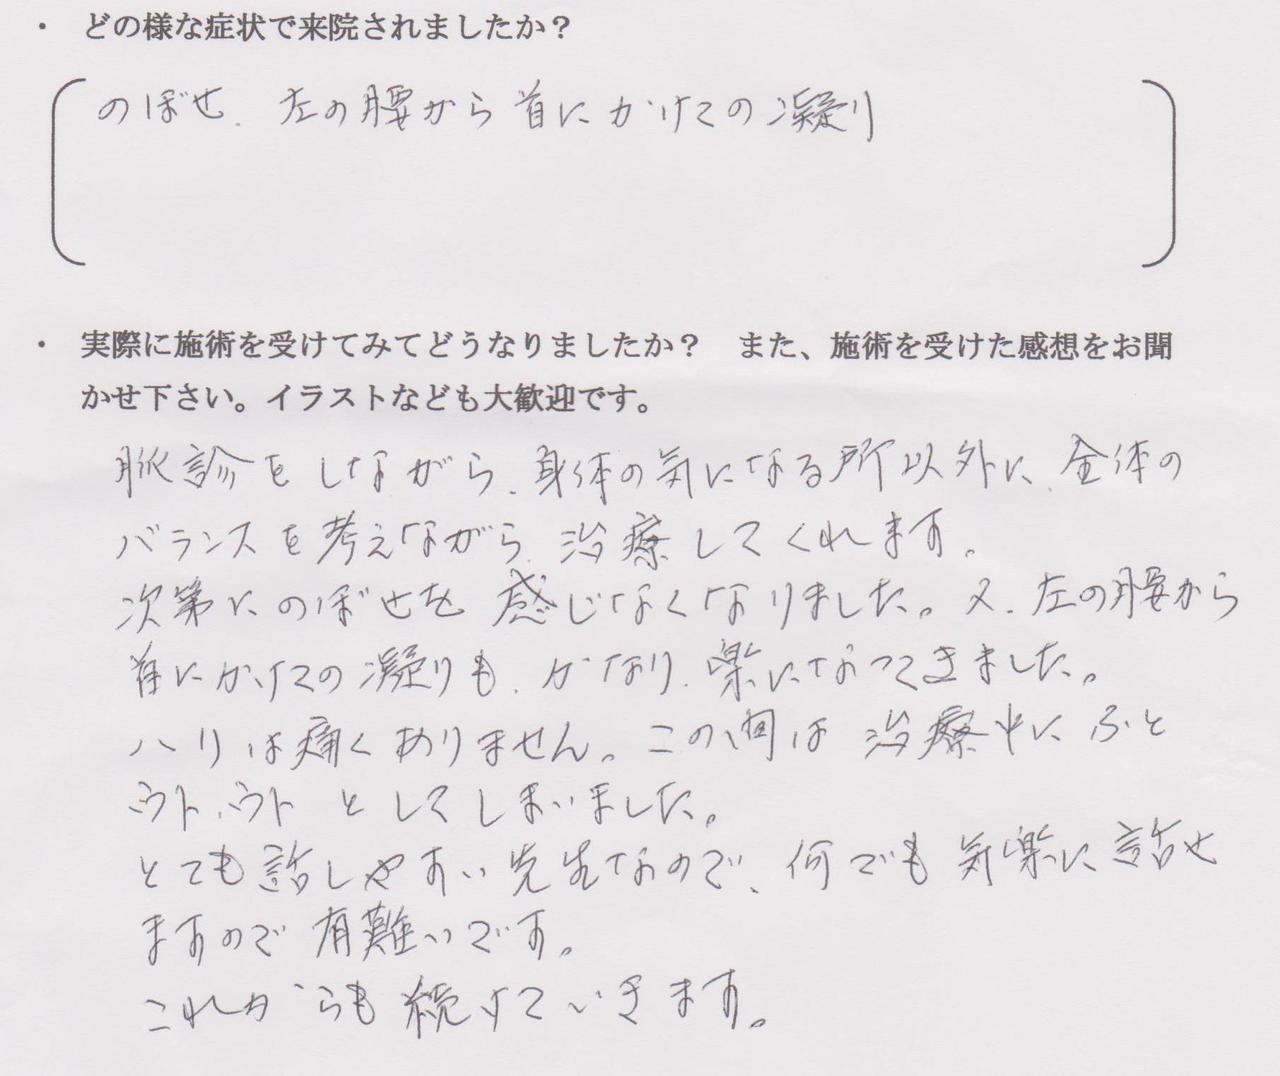 ・ どの様な症状で来院されましたか？
のぼせ、左の腰から首にかけての凝り
・ 実際に施術を受けてみてどうなりましたか？　また、施術を受けた感想をお聞
かせ下さい。イラストなども大歓迎です。
脈診をしながら、身体の気になる所以外に、全体の
バランスを考えながら、治療してくれます。
次第にのぼせを感じなくなりました。又、左の腰から
首にかけての凝りも、かなり、楽になってきました。
ハリは痛くありません。この間は治療中にふと
ウト、ウトとしてしまいました。
とても話しやすい先生なので、何でも気楽に話せ
ますので有難いです。
これからも続けていきます。